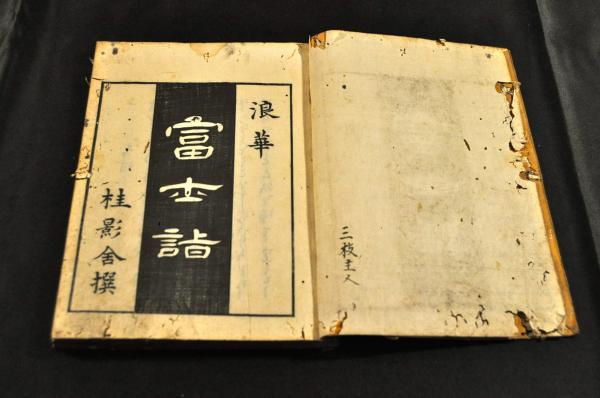 三枝主人
浪華
富士詣
桂影舎撰